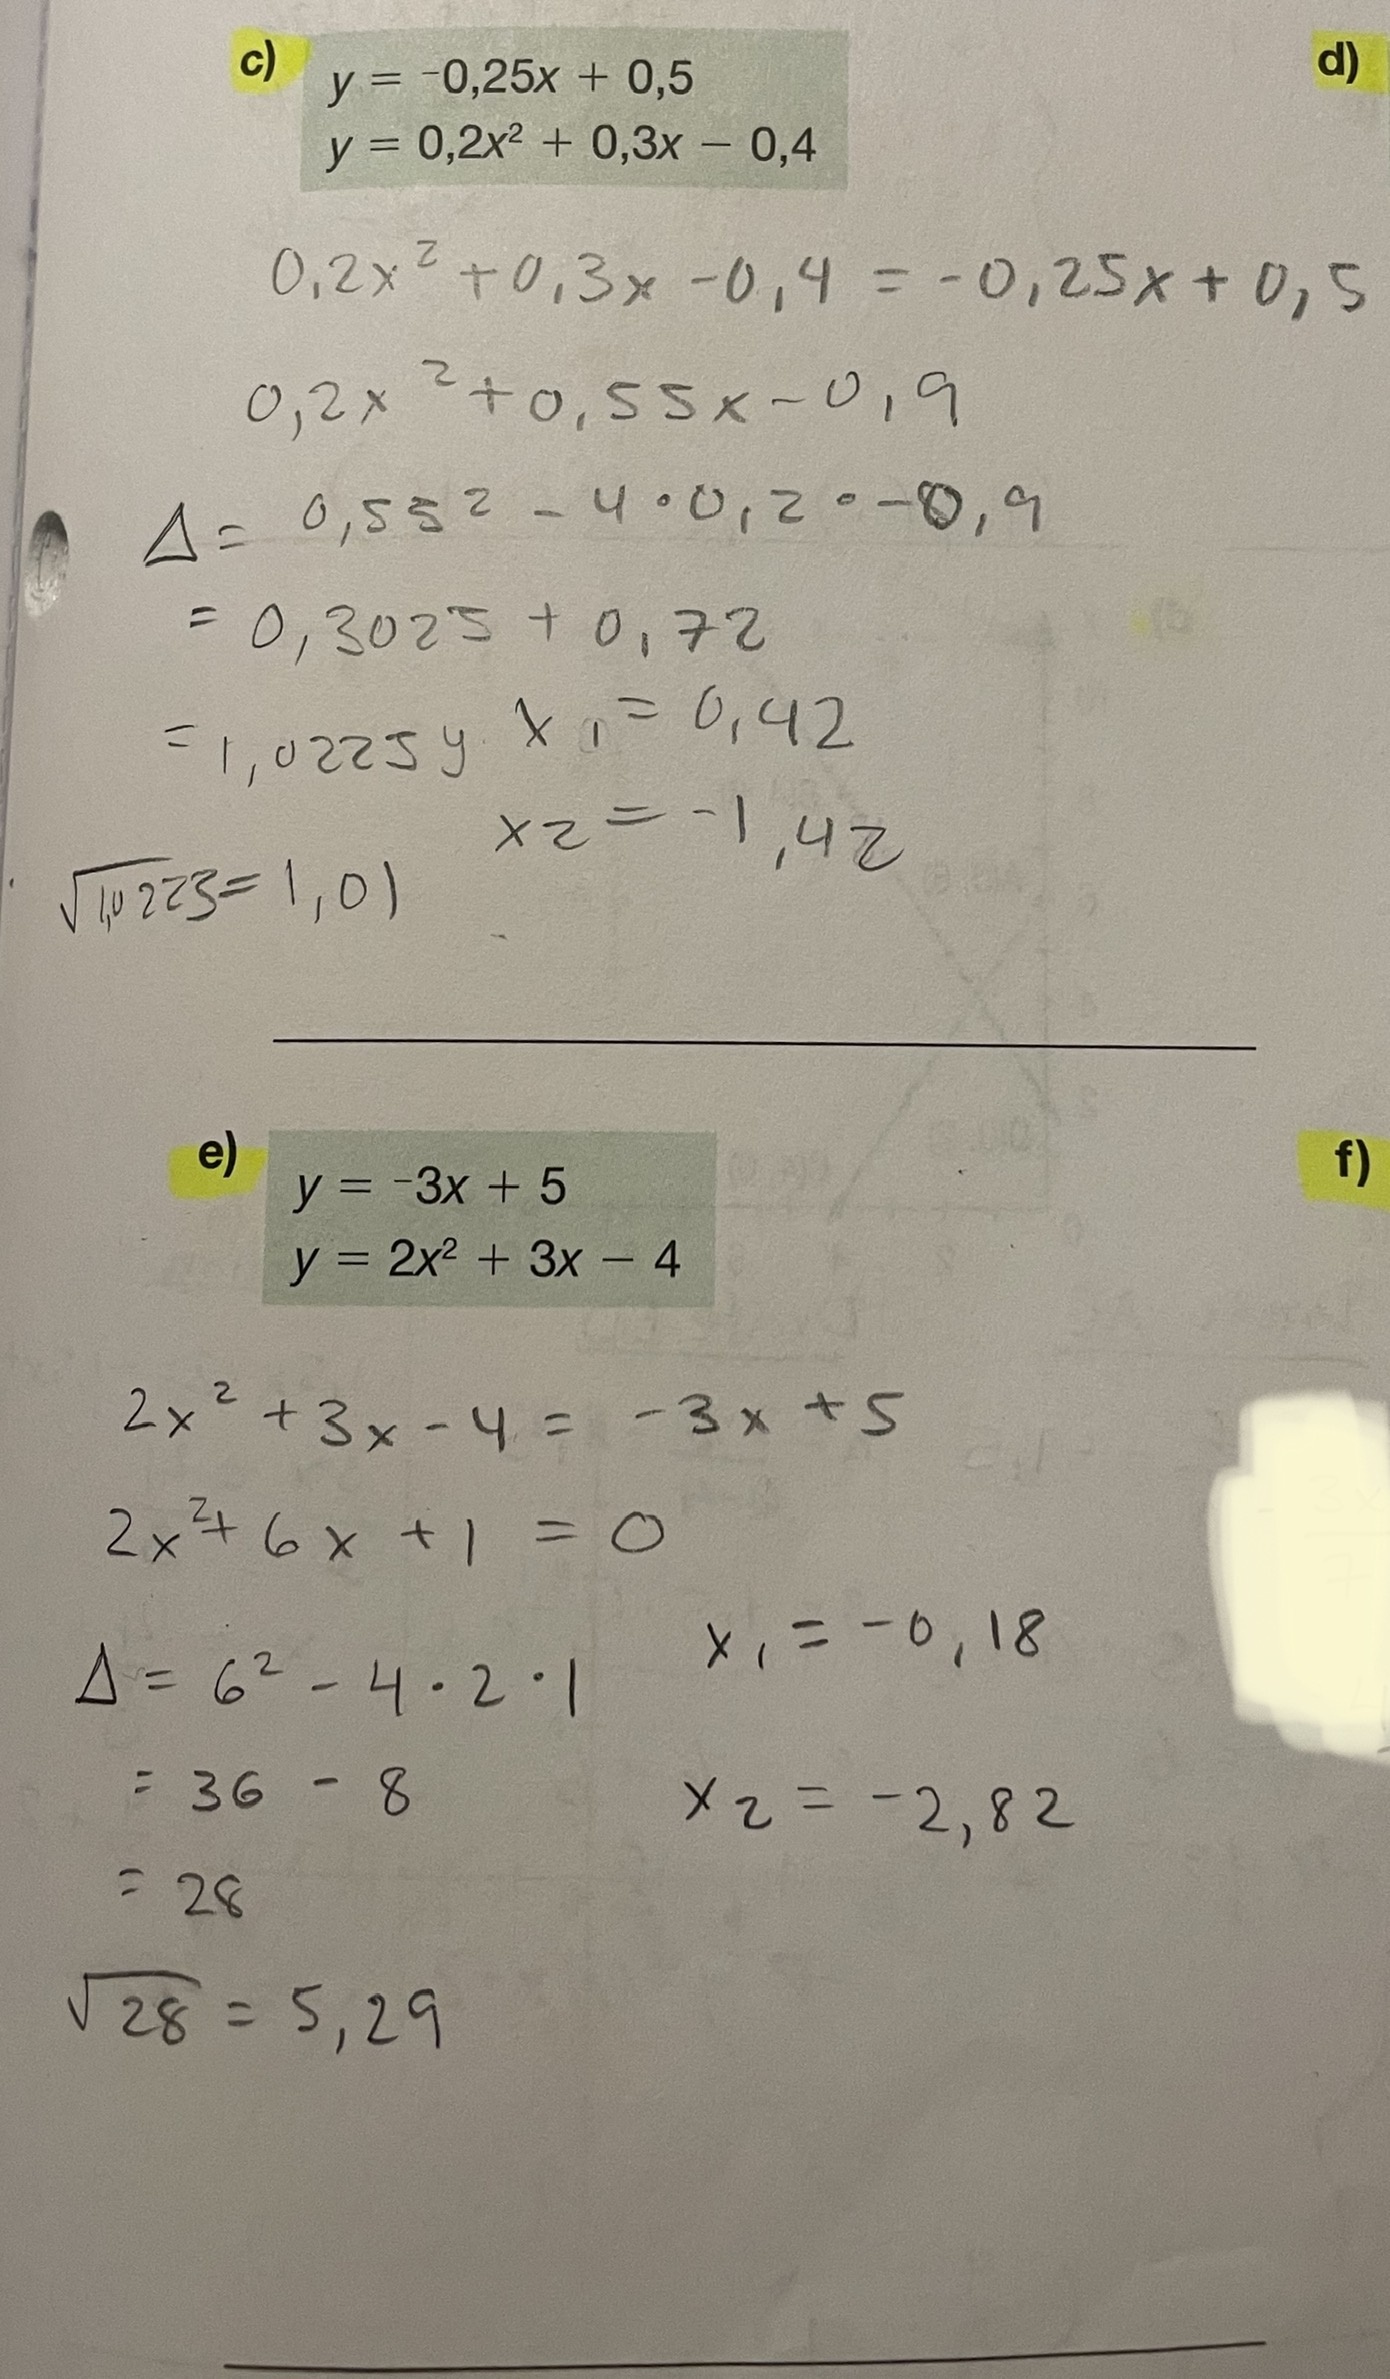 c)
d)
y = ⁻0,25x + 0,5
y = 0,2x² + 0,3x – 0,4
0,2x² + 0,3x - 0,4 = - 0,25x + 0,5
0,2x² + 0,55x - 0,9
Δ = 0,55² - 4 · 0,2 · -0,9
= 0,3025 + 0,72
= 1,0225 y x₁ = 0,42
x2 = -1,42
√1,0225 = 1,01
e)
f)
y = ⁻3x + 5
y = 2x² + 3x – 4
2x² + 3x - 4 = -3x + 5
2x² + 6x + 1 = 0
x₁ = -0,18
Δ = 6² - 4 · 2 · 1
= 36 - 8
x₂ = -2,82
= 28
√28 = 5,29